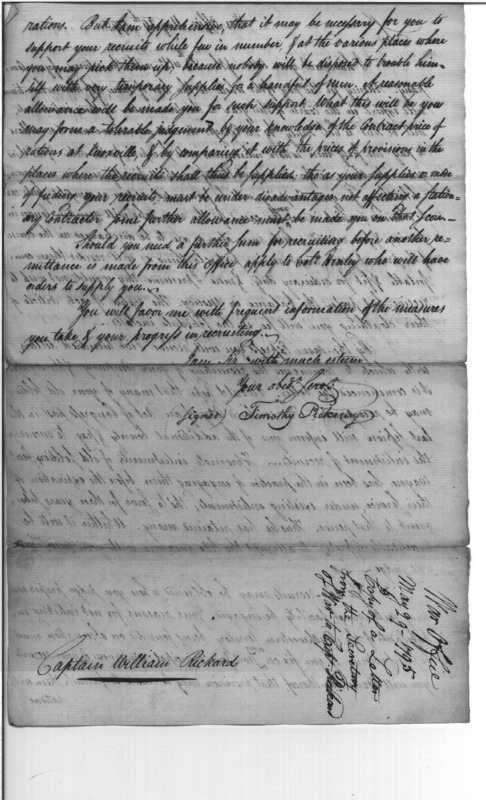 rations. But I am apprehensive, that it may be necessary for you to
support your recruits while few in number, & at the various places where
you may pick them up, because nobody will be disposed to trouble him-
self with very temporary supplies for a handful of men. A reasonable
allowance will be made you for such support. What this will be you
may form a tolerable judgment by your knowledge of the contract price of
rations at Knoxville, & by comparing it with the prices of provisions in the
places where the recruits shall thus be supplied, tho' as your supplies or mode
of feeding your recruits must be under disadvantages not affecting a station-
ary contractor some further allowance must be made you on that score.
Should you need a further sum for recruiting before another re-
mittance is made from this Office apply to Colo. Henley who will have
orders to supply you.
You will favor me with frequent information of the measures
you take & your progress in recruiting.
I am Sir with much esteem
Your obedt. Servt.
signed Timothy Pickering
War Office
May 29 1795
Copy of a Letter
from the Secretary
of War to Capt. Rickard
Captain William Rickard